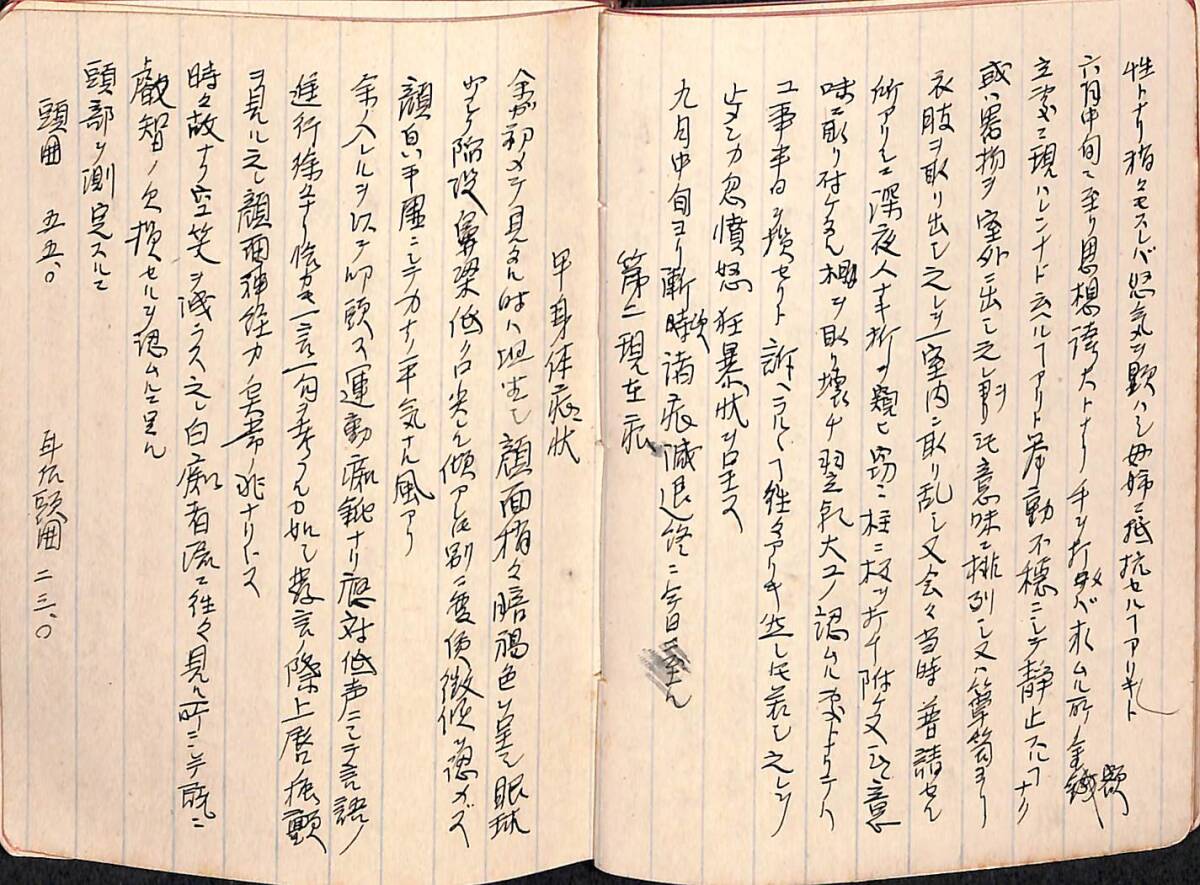 性トナリ稍々モスレバ怒気ヲ顕ハシ母姉ニ抵抗セルヿアリキト
六月中旬ニ至リ思想誇大トナリ手ヲ打テバ求ムル所ノ金額
立処ニ現ハレンナド云ヘルヿアリト挙動不穏ニシテ静止スルヿナク
或ハ器物ヲ室外ニ出シ之ヲ無意味ニ排列シ又ハ箪笥ヨリ
衣服ヲ取リ出シ之レヲ一室内ニ取リ乱シ又会々当時普請セル
所アリシニ深夜人ナキ折ヲ窺ヒ窃ニ柱ニ板ヲ打チ附ケ又ハ意
味ニ取リ付ケタル棚ヲ取リ壊チ翌朝大工ノ認ムル処トナリテハ
工事半日ヲ損セリト訴ヘラルヽヿ往々アリキ然レ共若シ之レヲ
止メンカ忽憤怒狂暴状ヲ呈ス
九月中旬ヨリ漸次時諸症減退終ニ今日ニ至ル
第二 現在症
甲 身体症状
余ガ初メテ見タル時ハ坦坐シ顔面稍々暗褐色ヲ呈シ眼球
少シク陥没鼻梁低ク口尖ル傾アレ共別ニ変質徴候ヲ認メズ
顔貌平凡ニシテカナリ平気ナル風アリ
余ノ入レルヲ以テ叩頭ス運動痴鈍ナリ応対低声ニシテ言語ノ
進行徐々ナリ恰カモ一言一句ヲ考フルガ如シ発言ノ際上唇振顫
ヲ見ル之レ顔面神経力異常ノ非ナリトス
時々故ナク空笑ヲ洩ラス之レ白痴者流ニ往々見ル所ニシテ既ニ
叡智ノ欠損セルヲ認ムルニ足ル
頭部ヲ測定スルニ
頭囲 五五、〇 耳后頭囲 二三、〇